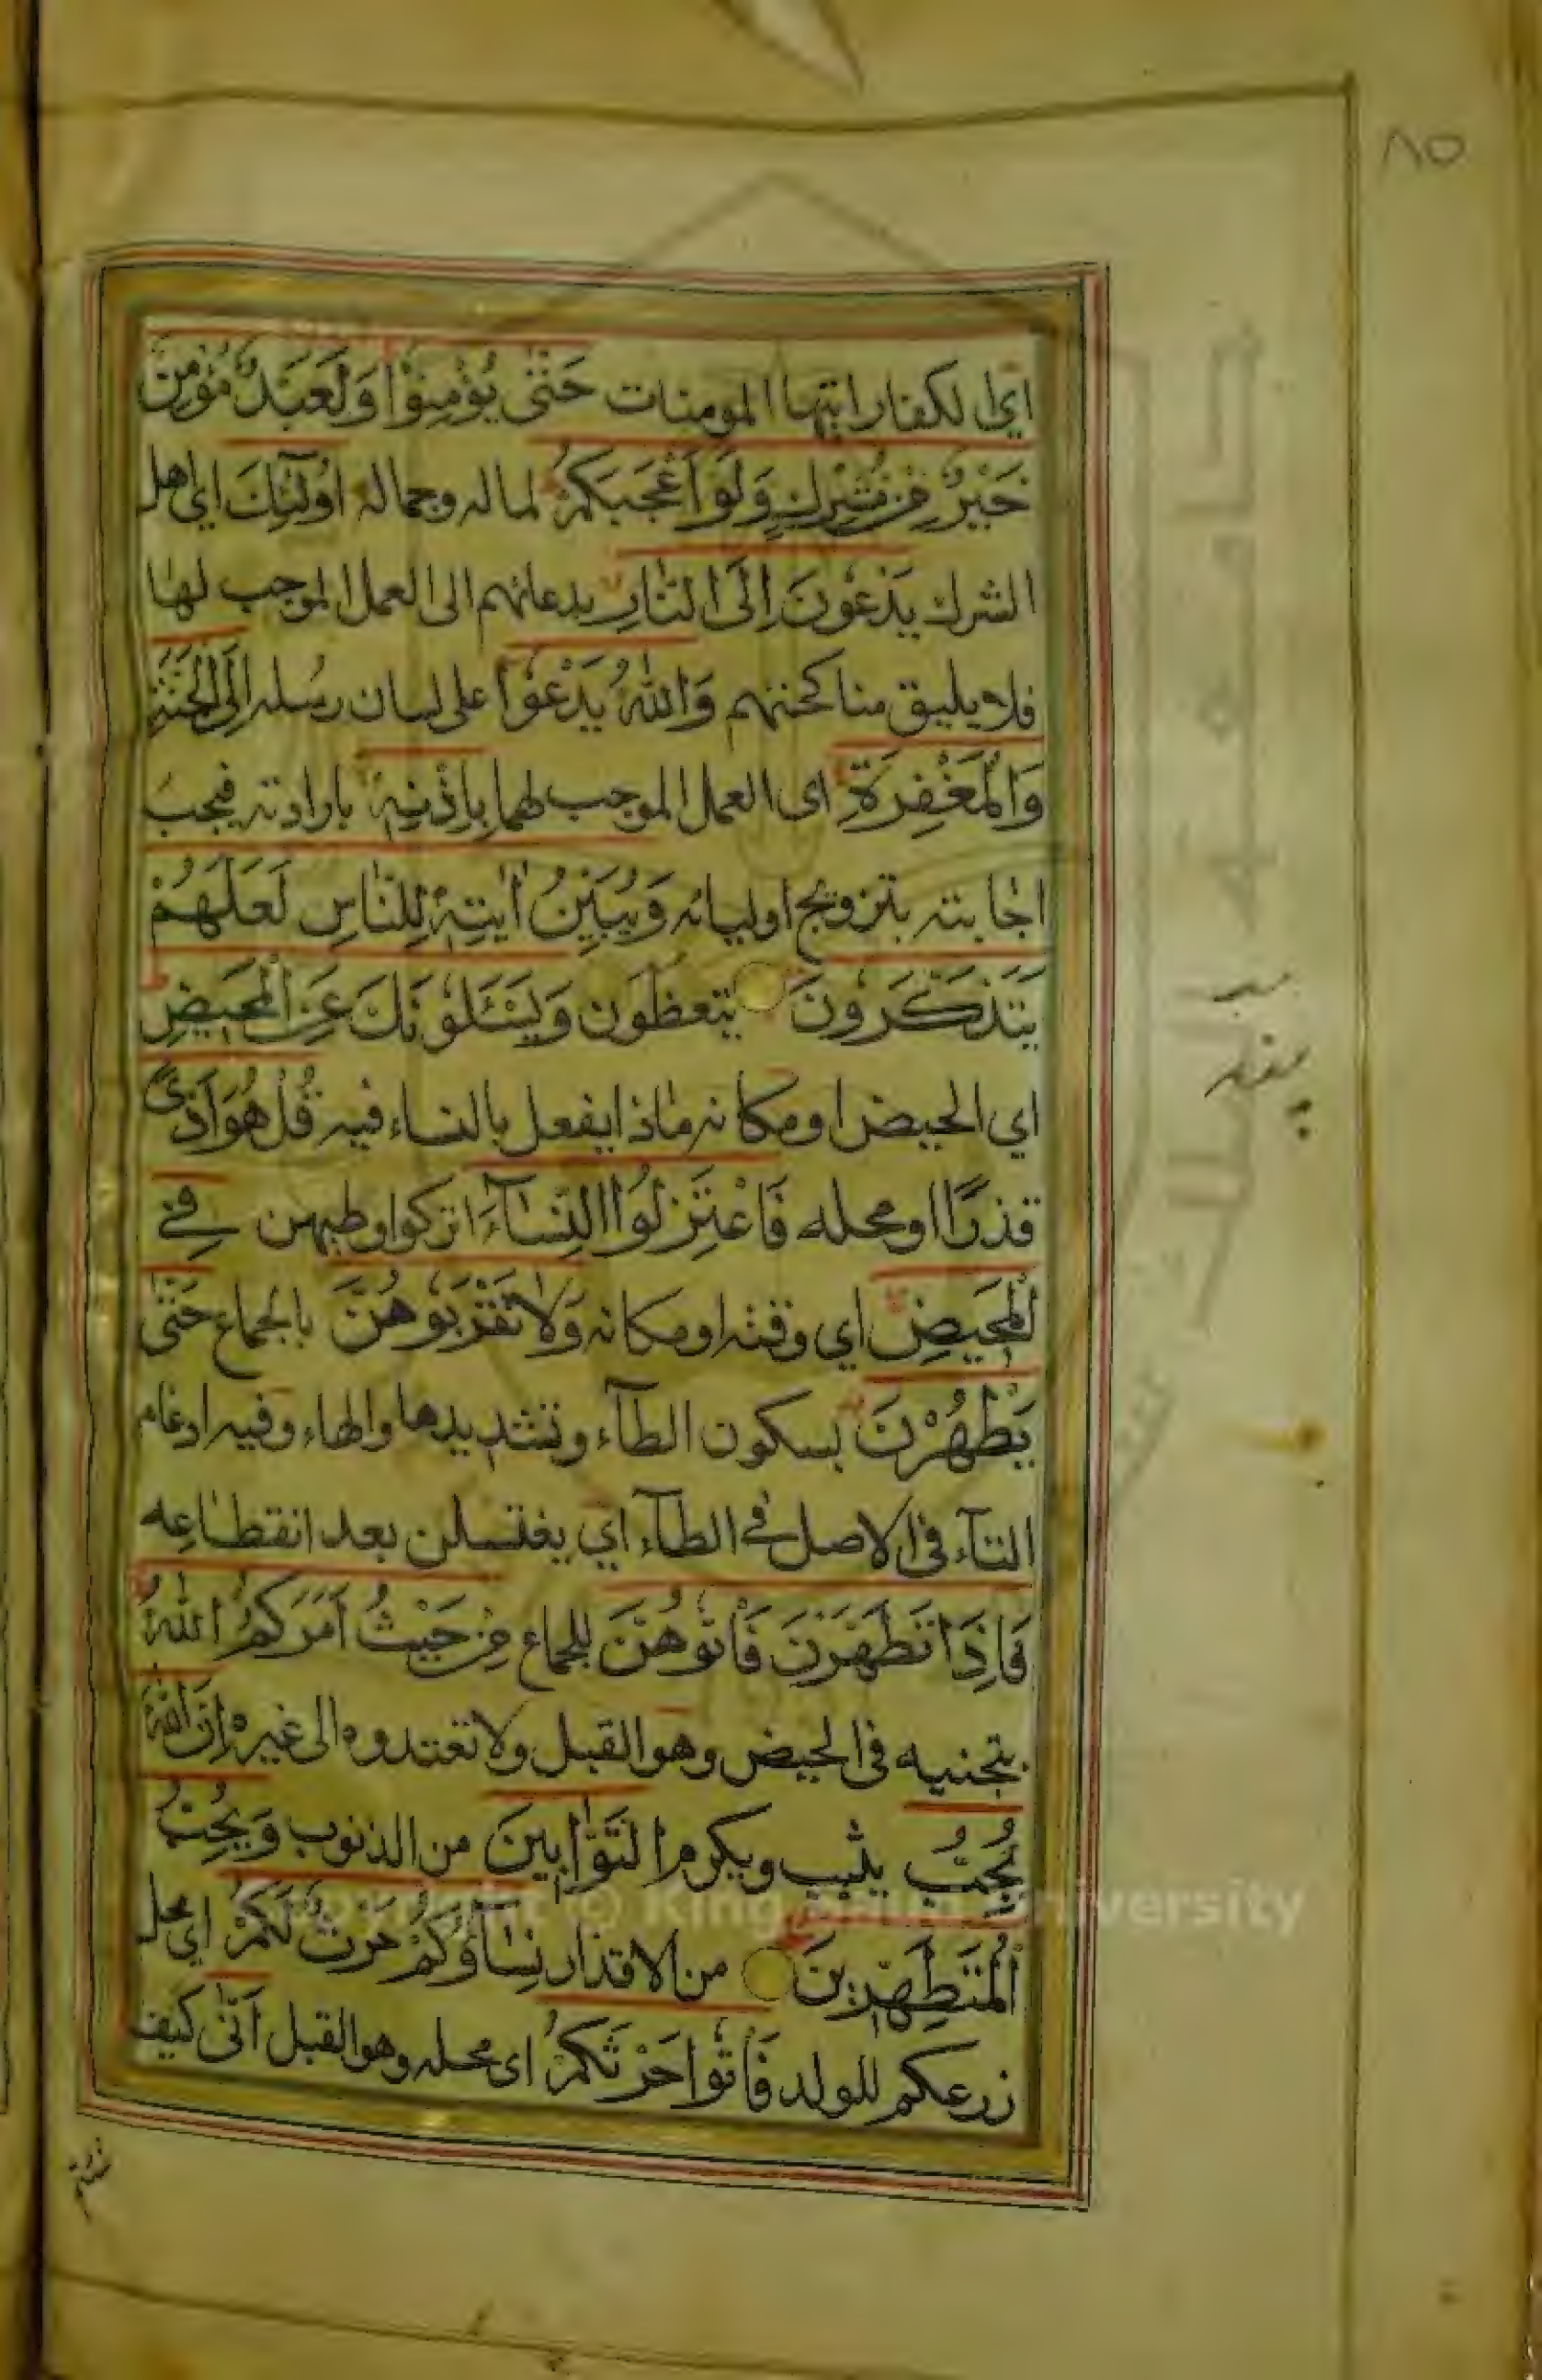 ٨٥
اي الكفار ايتها المومنات حَتّٰى يُؤْمِنُوْا وَلَعَبْدٌ مُؤْمِنٌ
خَيْرٌ مِنْ مُشْرِكٍ وَلَوْ اَعْجَبَكُمْ لماله وجماله اُولٰٓئِكَ اي اهل
الشرك يَدْعُوْنَ اِلَى النَّارِ بدعائهم الى العمل الموجب لها
فلا يليق مناكحتهم وَاللّٰهُ يَدْعُوْا على لسان رسله اِلَى الْجَنَّةِ
وَالْمَغْفِرَةِ اى العمل الموجب لهما بِاِذْنِهٖ بارادته فيجب
اجابته بتزويج اوليائه وَيُبَيِّنُ اٰيٰتِهٖ لِلنَّاسِ لَعَلَّهُمْ
يَتَذَكَّرُوْنَ يتعظون وَيَسْئَلُوْنَكَ عَنِ الْمَحِيْضِ
اي الحيض او مكانه ماذا يفعل بالنساء فيه قُلْ هُوَ اَذًى
قذرًا او محله فَاعْتَزِلُوا النِّسَآءَ اتركوا وطيهن فِي
الْمَحِيْضِ اي وقته او مكانه وَلَا تَقْرَبُوْهُنَّ بالجماع حَتّٰى
يَطْهُرْنَ بسكون الطآء وتشديدها والهاء وفيه ادغام
التآء فى الاصل في الطآء اي يغتسلن بعد انقطاعه
فَاِذَا تَطَهَّرْنَ فَأْتُوْهُنَّ للجماع مِنْ حَيْثُ اَمَرَكُمُ اللّٰهُ
بتجنبه فى الحيض وهو القبل ولا تعتدوه الى غيره اِنَّ اللّٰهَ
يُحِبُّ يثيب ويكرم التَّوَّابِيْنَ من الذنوب وَيُحِبُّ
الْمُتَطَهِّرِيْنَ من الاقذار نِسَآؤُكُمْ حَرْثٌ لَكُمْ اي محل
زرعكم للولد فَأْتُوْا حَرْثَكُمْ اى محله وهو القبل اَنّٰى كيف
Copyright © King Saud University